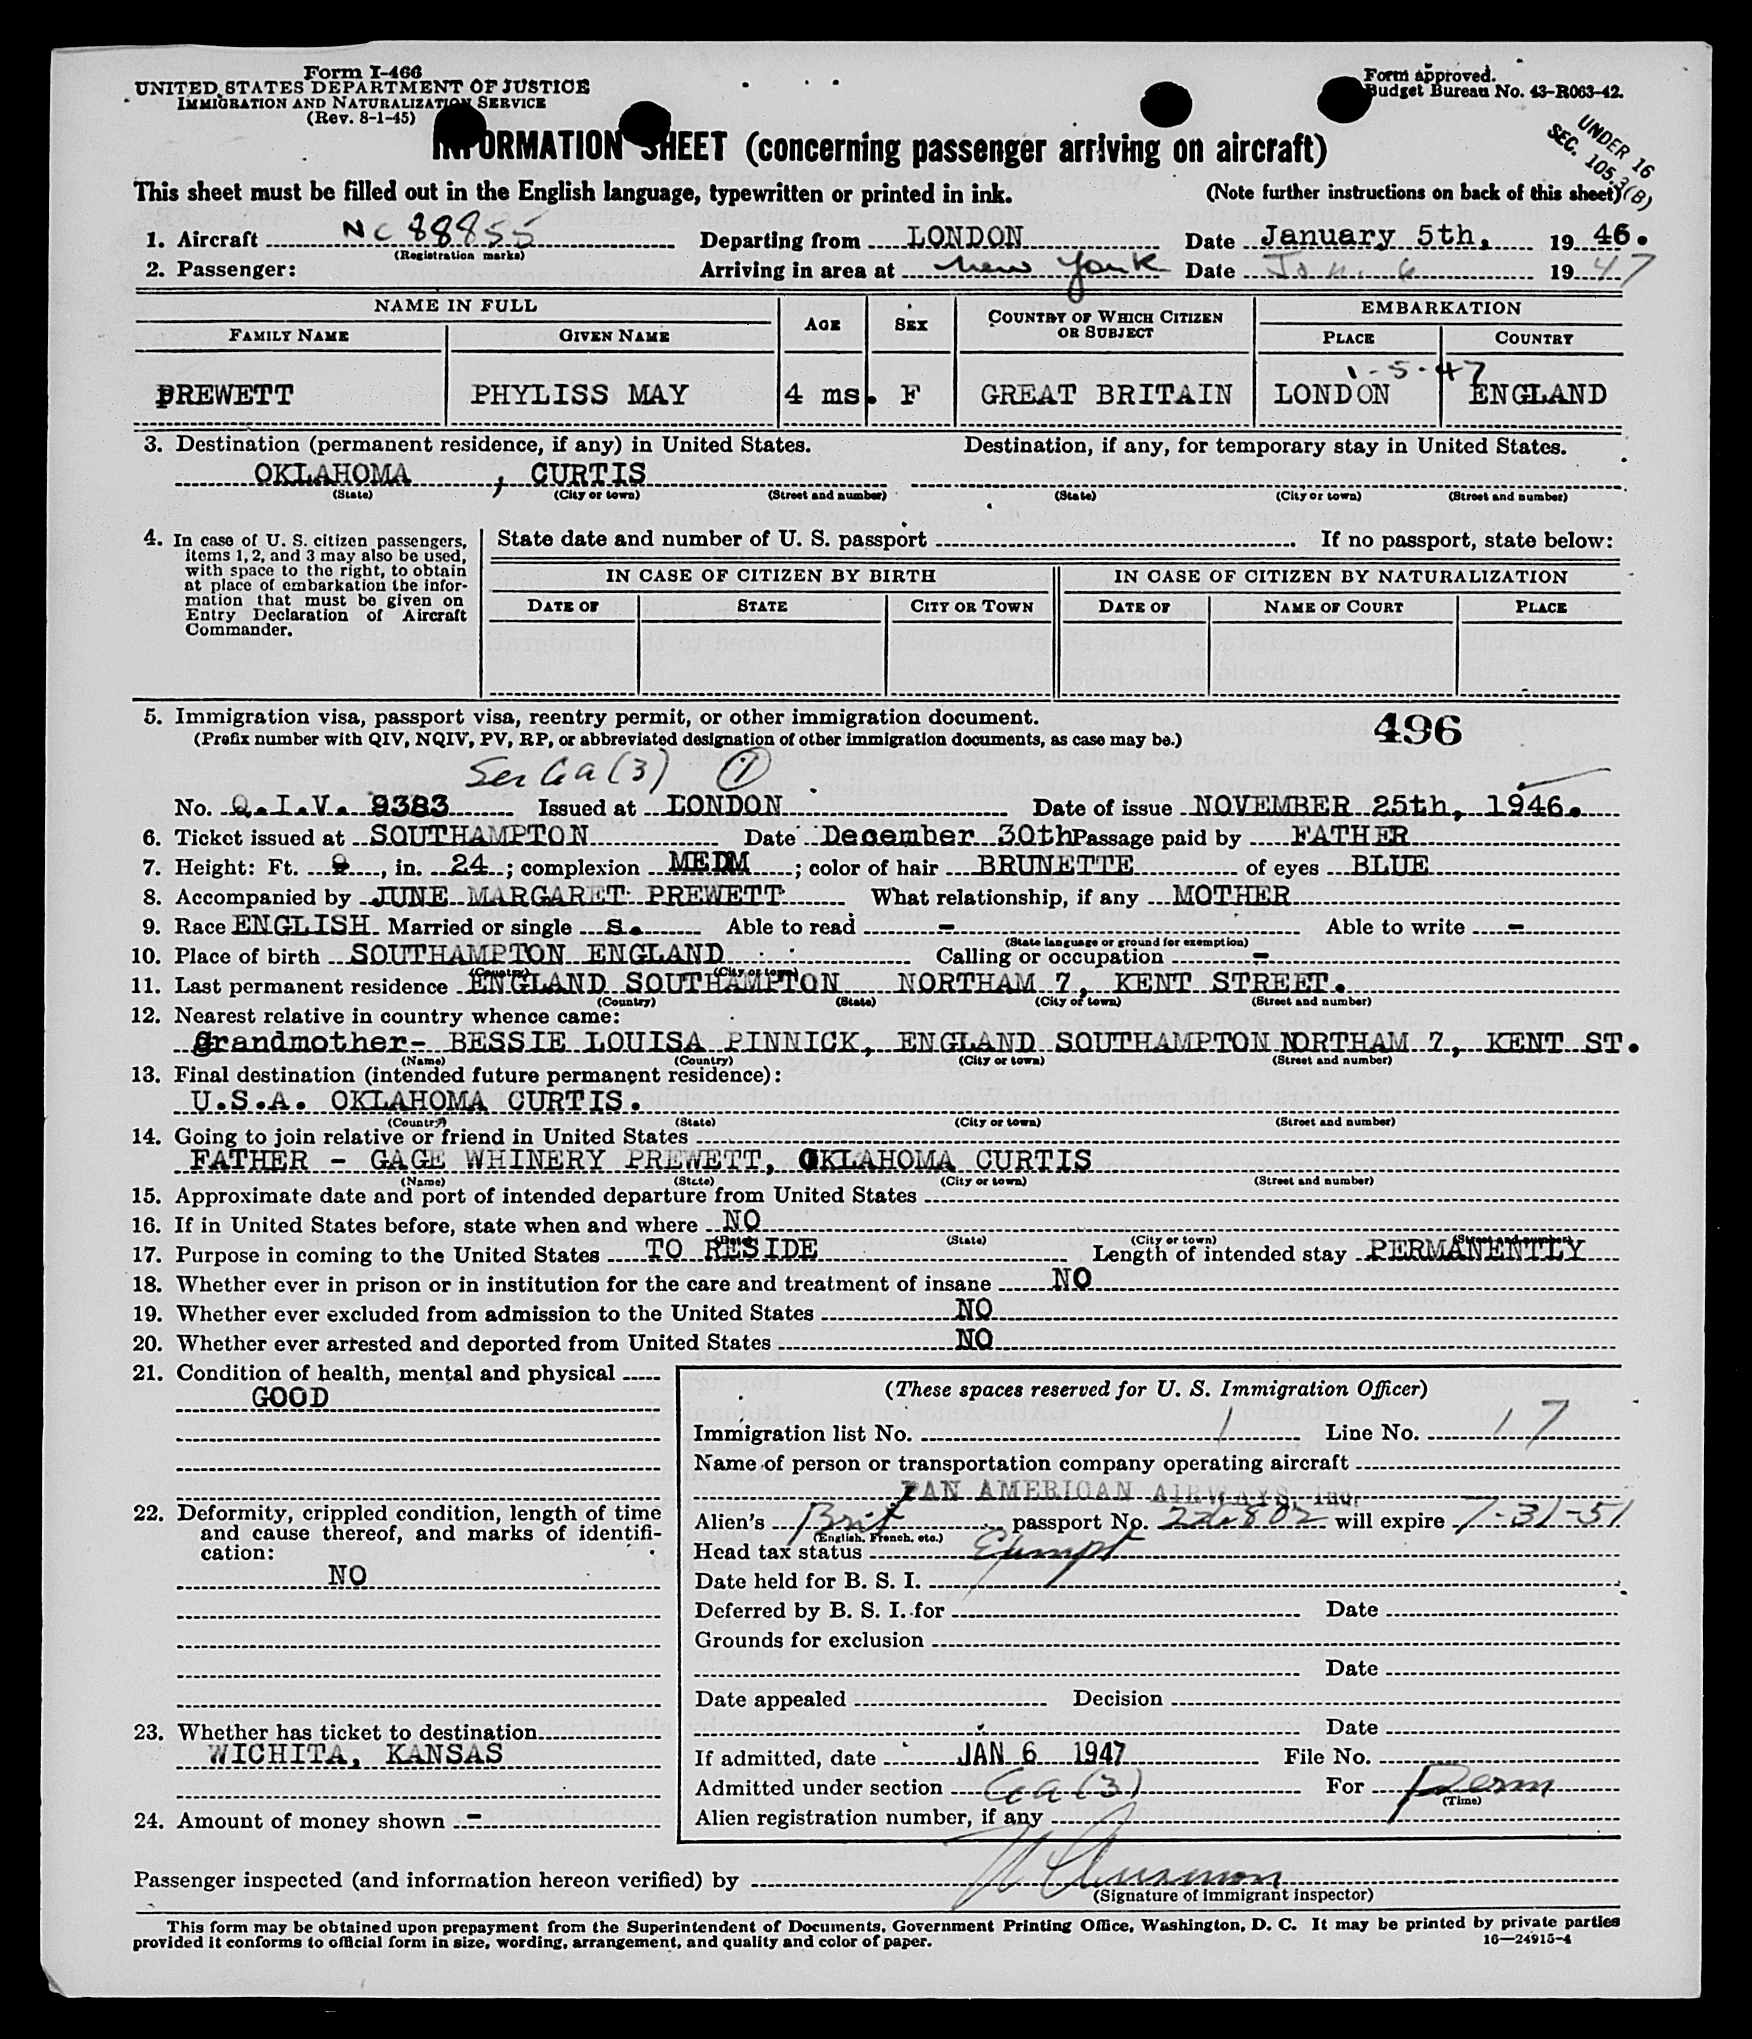 Form I-466
UNITED STATES DEPARTMENT OF JUSTICE
IMMIGRATION AND NATURALIZATION SERVICE
(Rev. 8-1-45)
Form approved.
Budget Bureau No. 43-R063-42.
UNDER 16
SEC. 105.3(B)
INFORMATION SHEET (concerning passenger arriving on aircraft)
This sheet must be filled out in the English language, typewritten or printed in ink. (Note further instructions on back of this sheet)
1. Aircraft NC 88855 Departing from LONDON Date January 5th, 19 46.
(Registration marks)
2. Passenger: Arriving in area at New York Date Jan. 6 19 47
NAME IN FULL AGE SEX COUNTRY OF WHICH CITIZEN OR SUBJECT EMBARKATION
FAMILY NAME GIVEN NAME PLACE COUNTRY
1-5-47
PREWETT PHYLISS MAY 4 ms. F GREAT BRITAIN LONDON ENGLAND
3. Destination (permanent residence, if any) in United States. Destination, if any, for temporary stay in United States.
OKLAHOMA , CURTIS
(State) (City or town) (Street and number) (State) (City or town) (Street and number)
4. In case of U. S. citizen passengers, items 1, 2, and 3 may also be used, with space to the right, to obtain at place of embarkation the information that must be given on Entry Declaration of Aircraft Commander.
State date and number of U. S. passport If no passport, state below:
IN CASE OF CITIZEN BY BIRTH IN CASE OF CITIZEN BY NATURALIZATION
DATE OF STATE CITY OR TOWN DATE OF NAME OF COURT PLACE
5. Immigration visa, passport visa, reentry permit, or other immigration document. 496
(Prefix number with QIV, NQIV, PV, RP, or abbreviated designation of other immigration documents, as case may be.)
(3) (1)
No. Q.I.V. 9383 Issued at LONDON Date of issue NOVEMBER 25th, 1946.
6. Ticket issued at SOUTHAMPTON Date December 30th Passage paid by FATHER
7. Height: Ft. , in. 24 ; complexion MEDM ; color of hair BRUNETTE of eyes BLUE
8. Accompanied by JUNE MARGARET PREWETT What relationship, if any MOTHER
9. Race ENGLISH Married or single S. Able to read - Able to write -
(State language or ground for exemption)
10. Place of birth SOUTHAMPTON ENGLAND Calling or occupation -
(Country) (City or town)
11. Last permanent residence ENGLAND SOUTHAMPTON NORTHAM 7, KENT STREET.
(Country) (State) (City or town) (Street and number)
12. Nearest relative in country whence came:
Grandmother- BESSIE LOUISA PINNICK, ENGLAND SOUTHAMPTON NORTHAM 7, KENT ST.
(Name) (Country) (City or town) (Street and number)
13. Final destination (intended future permanent residence):
U.S.A. OKLAHOMA CURTIS.
(Country) (State) (City or town) (Street and number)
14. Going to join relative or friend in United States
FATHER - GAGE WHINERY PREWETT, OKLAHOMA CURTIS
(Name) (State) (City or town) (Street and number)
15. Approximate date and port of intended departure from United States
16. If in United States before, state when and where NO
(Date) (State) (City or town) (Street and number)
17. Purpose in coming to the United States TO RESIDE Length of intended stay PERMANENTLY
18. Whether ever in prison or in institution for the care and treatment of insane NO
19. Whether ever excluded from admission to the United States NO
20. Whether ever arrested and deported from United States NO
21. Condition of health, mental and physical
GOOD
22. Deformity, crippled condition, length of time
and cause thereof, and marks of identifi-
cation:
NO
23. Whether has ticket to destination
WICHITA, KANSAS
24. Amount of money shown -
(These spaces reserved for U. S. Immigration Officer)
Immigration list No. 1 Line No. 17
Name of person or transportation company operating aircraft
PAN AMERICAN AIRWAYS, Inc.
Alien's Brit passport No. will expire 7-31-51
(English, French, etc.)
Head tax status Exempt
Date held for B. S. I.
Deferred by B. S. I. for Date
Grounds for exclusion
Date
Date appealed Decision
Date
If admitted, date JAN 6 1947 File No.
Admitted under section (3) For Perm
(Time)
Alien registration number, if any
Passenger inspected (and information hereon verified) by
(Signature of immigrant inspector)
This form may be obtained upon prepayment from the Superintendent of Documents, Government Printing Office, Washington, D. C. It may be printed by private parties
provided it conforms to official form in size, wording, arrangement, and quality and color of paper. 16—24915-4